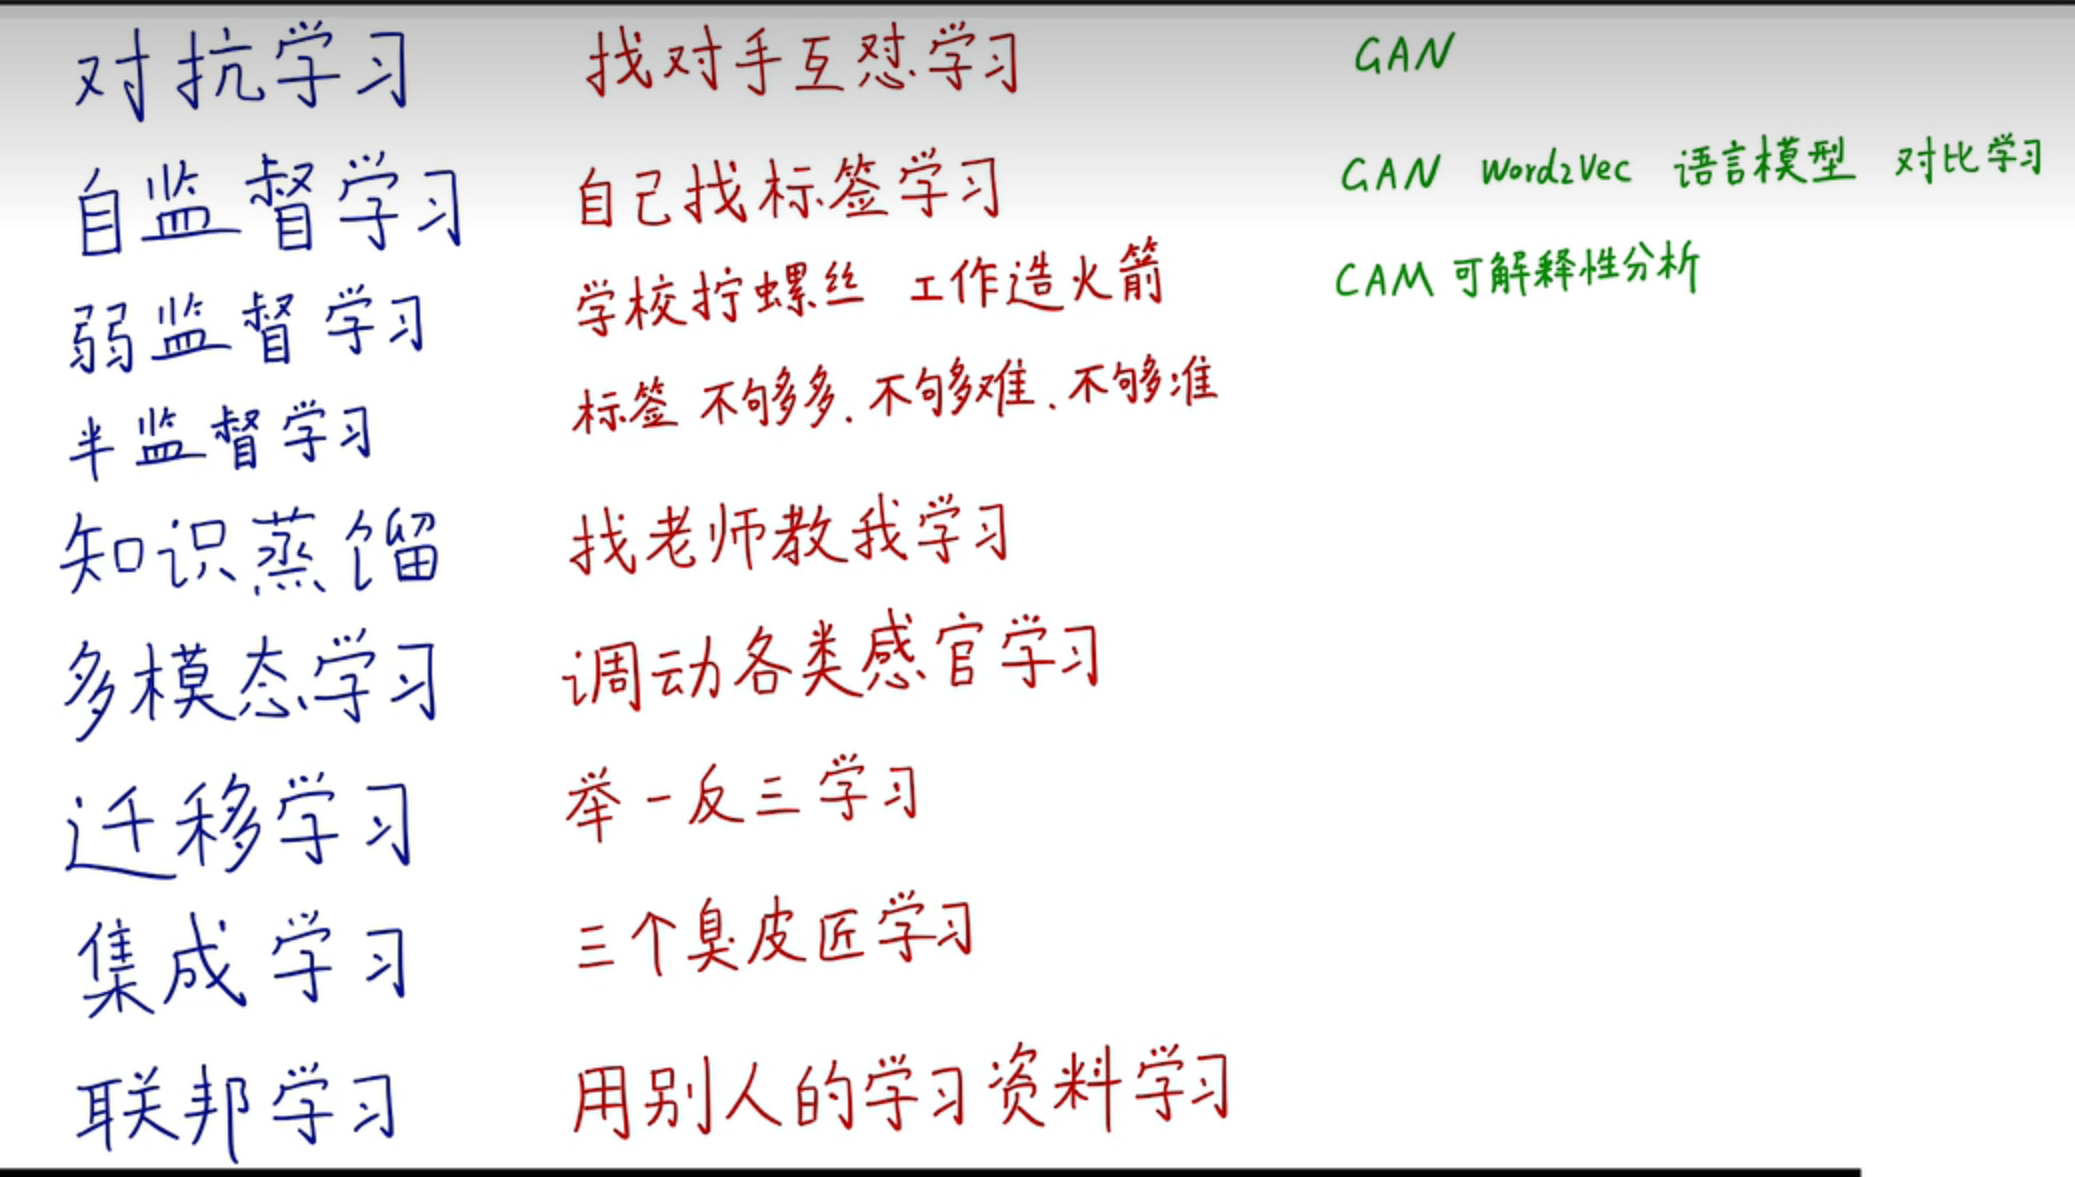 对抗学习 找对手互怼学习 GAN
自监督学习 自己找标签学习 GAN Word2Vec 语言模型 对比学习
弱监督学习 学校拧螺丝 工作造火箭 CAM 可解释性分析
半监督学习 标签 不够多、不够难、不够准
知识蒸馏 找老师教我学习
多模态学习 调动各类感官学习
迁移学习 举一反三学习
集成学习 三个臭皮匠学习
联邦学习 用别人的学习资料学习